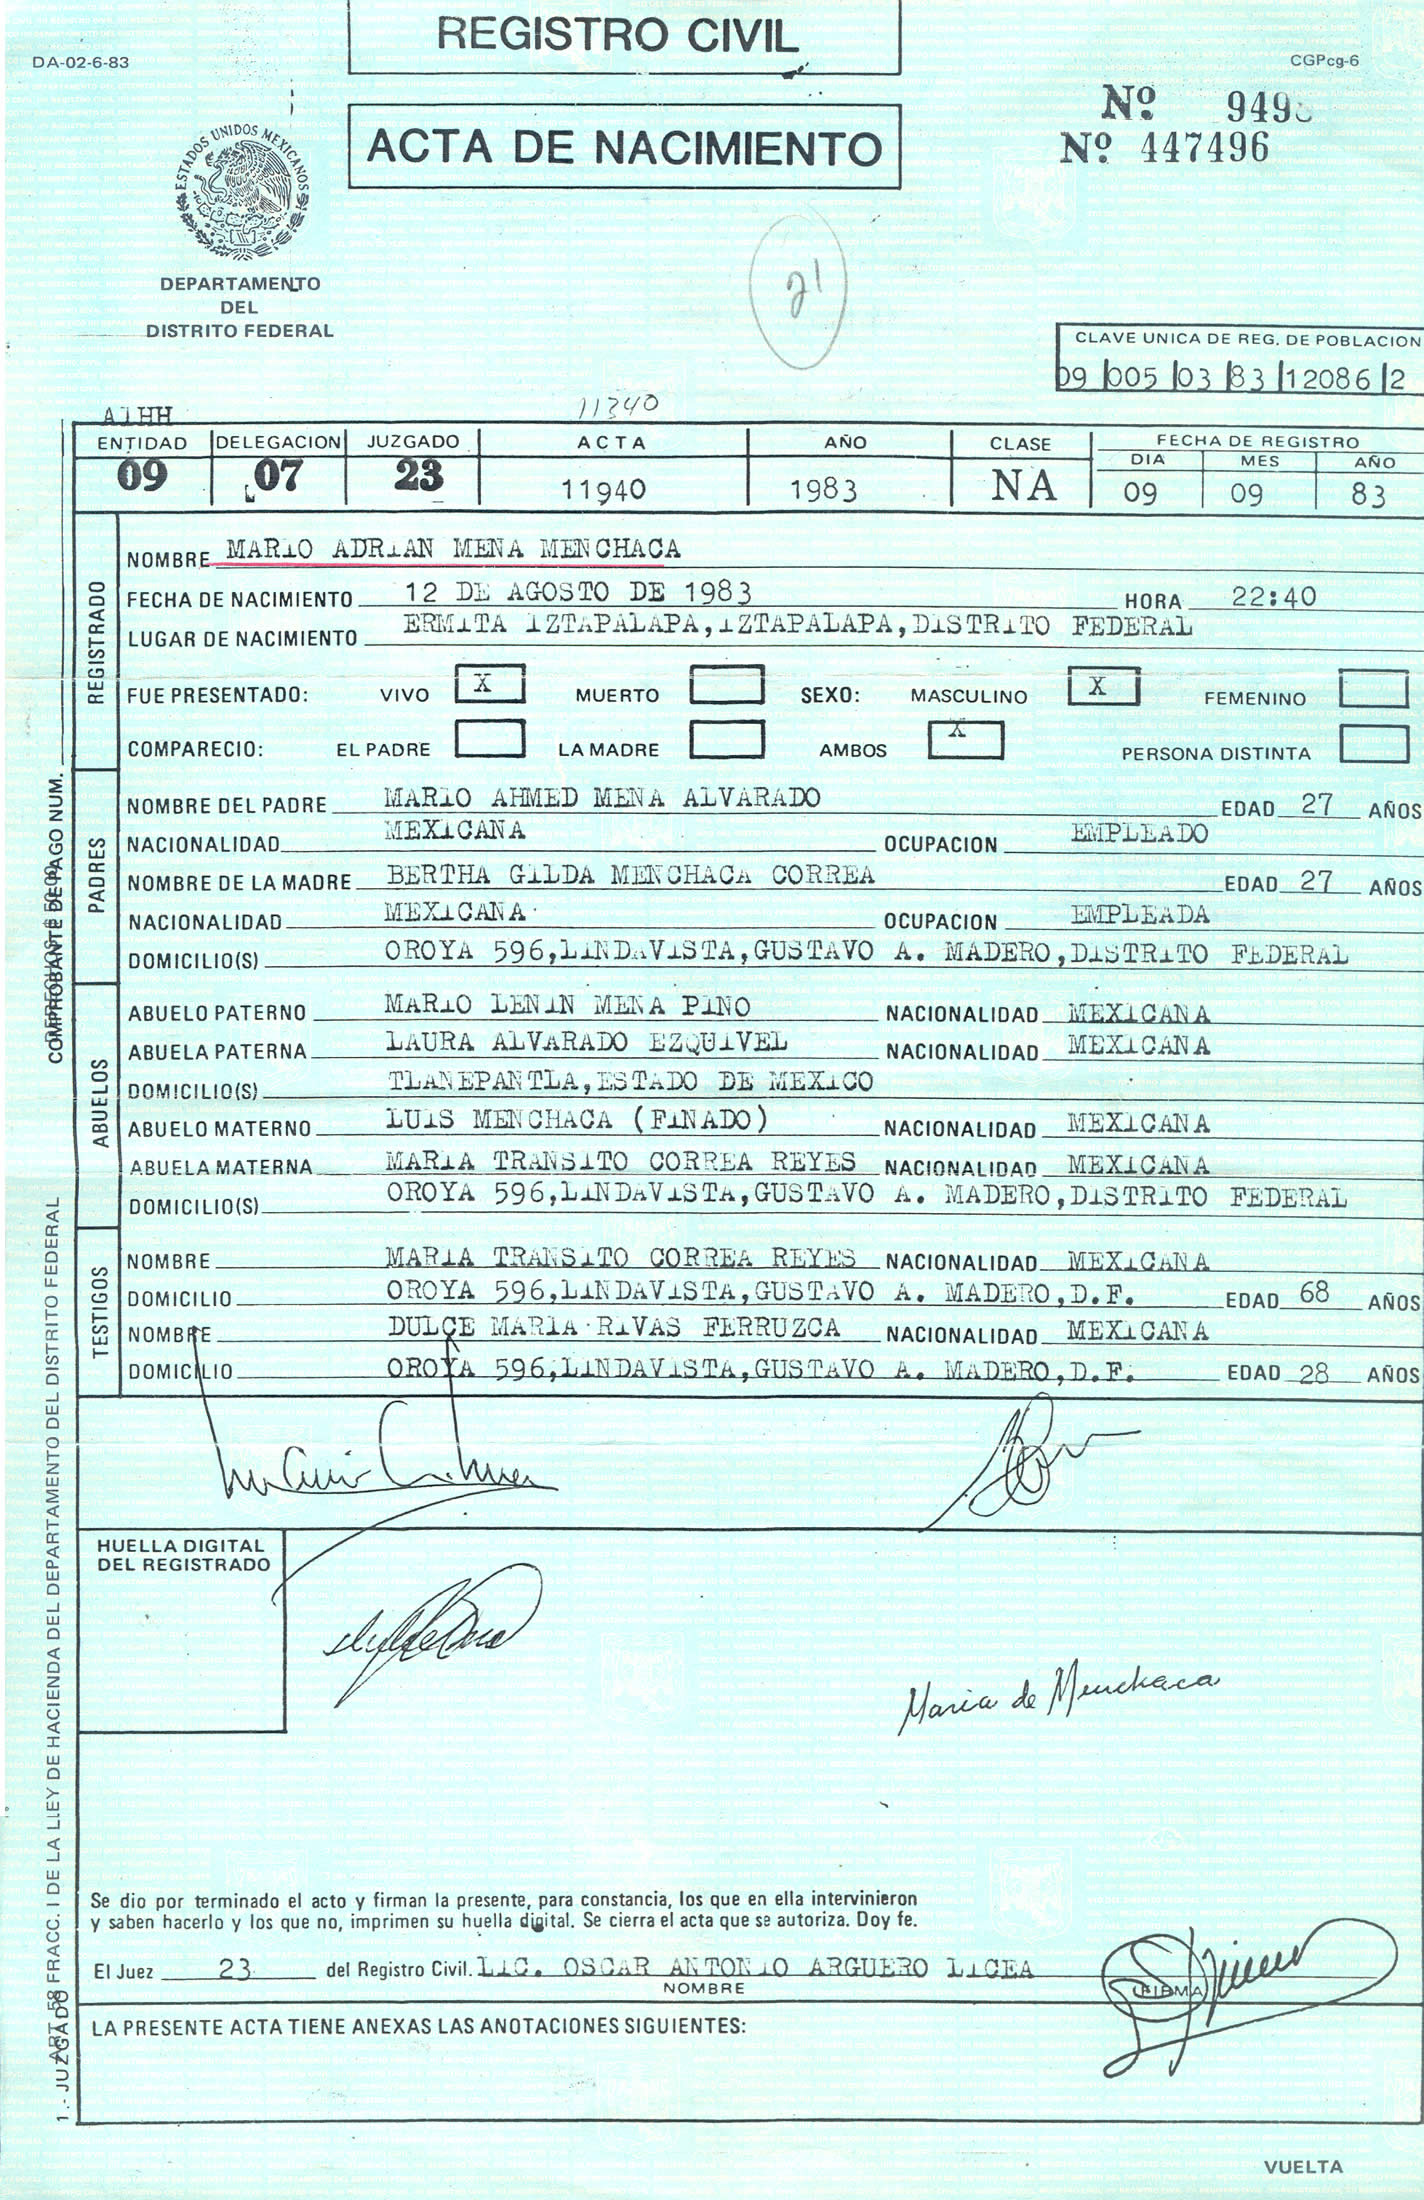 REGISTRO CIVIL
DA-02-6-83
CGPcg-6
ACTA DE NACIMIENTO
Nº 949
Nº 447496
ESTADOS UNIDOS MEXICANOS
DEPARTAMENTO
DEL
DISTRITO FEDERAL
21
CLAVE UNICA DE REG. DE POBLACION
09 005 03 83 12086 2
A1HH
11340
ENTIDAD DELEGACION JUZGADO ACTA AÑO CLASE FECHA DE REGISTRO
DIA MES AÑO
09 07 23 11940 1983 NA 09 09 83
REGISTRADO
NOMBRE MARIO ADRIAN MENA MENCHACA
FECHA DE NACIMIENTO 12 DE AGOSTO DE 1983 HORA 22:40
LUGAR DE NACIMIENTO ERMITA IZTAPALAPA, IZTAPALAPA, DISTRITO FEDERAL
FUE PRESENTADO: VIVO X MUERTO SEXO: MASCULINO X FEMENINO
COMPARECIO: EL PADRE LA MADRE AMBOS X PERSONA DISTINTA
PADRES
NOMBRE DEL PADRE MARIO AHMED MENA ALVARADO EDAD 27 AÑOS
NACIONALIDAD MEXICANA OCUPACION EMPLEADO
NOMBRE DE LA MADRE BERTHA GILDA MENCHACA CORREA EDAD 27 AÑOS
NACIONALIDAD MEXICANA OCUPACION EMPLEADA
DOMICILIO(S) OROYA 596, LINDAVISTA, GUSTAVO A. MADERO, DISTRITO FEDERAL
ABUELOS
ABUELO PATERNO MARIO LENIN MENA PINO NACIONALIDAD MEXICANA
ABUELA PATERNA LAURA ALVARADO EZQUIVEL NACIONALIDAD MEXICANA
DOMICILIO(S) TLANEPANTLA, ESTADO DE MEXICO
ABUELO MATERNO LUIS MENCHACA (FINADO) NACIONALIDAD MEXICANA
ABUELA MATERNA MARIA TRANSITO CORREA REYES NACIONALIDAD MEXICANA
DOMICILIO(S) OROYA 596, LINDAVISTA, GUSTAVO A. MADERO, DISTRITO FEDERAL
TESTIGOS
NOMBRE MARIA TRANSITO CORREA REYES NACIONALIDAD MEXICANA
DOMICILIO OROYA 596, LINDAVISTA, GUSTAVO A. MADERO, D.F. EDAD 68 AÑOS
NOMBRE DULCE MARIA RIVAS FERRUZCA NACIONALIDAD MEXICANA
DOMICILIO OROYA 596, LINDAVISTA, GUSTAVO A. MADERO, D.F. EDAD 28 AÑOS
HUELLA DIGITAL
DEL REGISTRADO
Maria de Menchaca
Se dio por terminado el acto y firman la presente, para constancia, los que en ella intervinieron
y saben hacerlo y los que no, imprimen su huella digital. Se cierra el acta que se autoriza. Doy fe.
El Juez 23 del Registro Civil. LIC. OSCAR ANTONIO ARGUERO LICEA
NOMBRE
FIRMA
LA PRESENTE ACTA TIENE ANEXAS LAS ANOTACIONES SIGUIENTES:
VUELTA
COMPROBANTE DE PAGO NUM.
ART. 58 FRACC. I DE LA LLEY DE HACIENDA DEL DEPARTAMENTO DEL DISTRITO FEDERAL
1.- JUZGADO